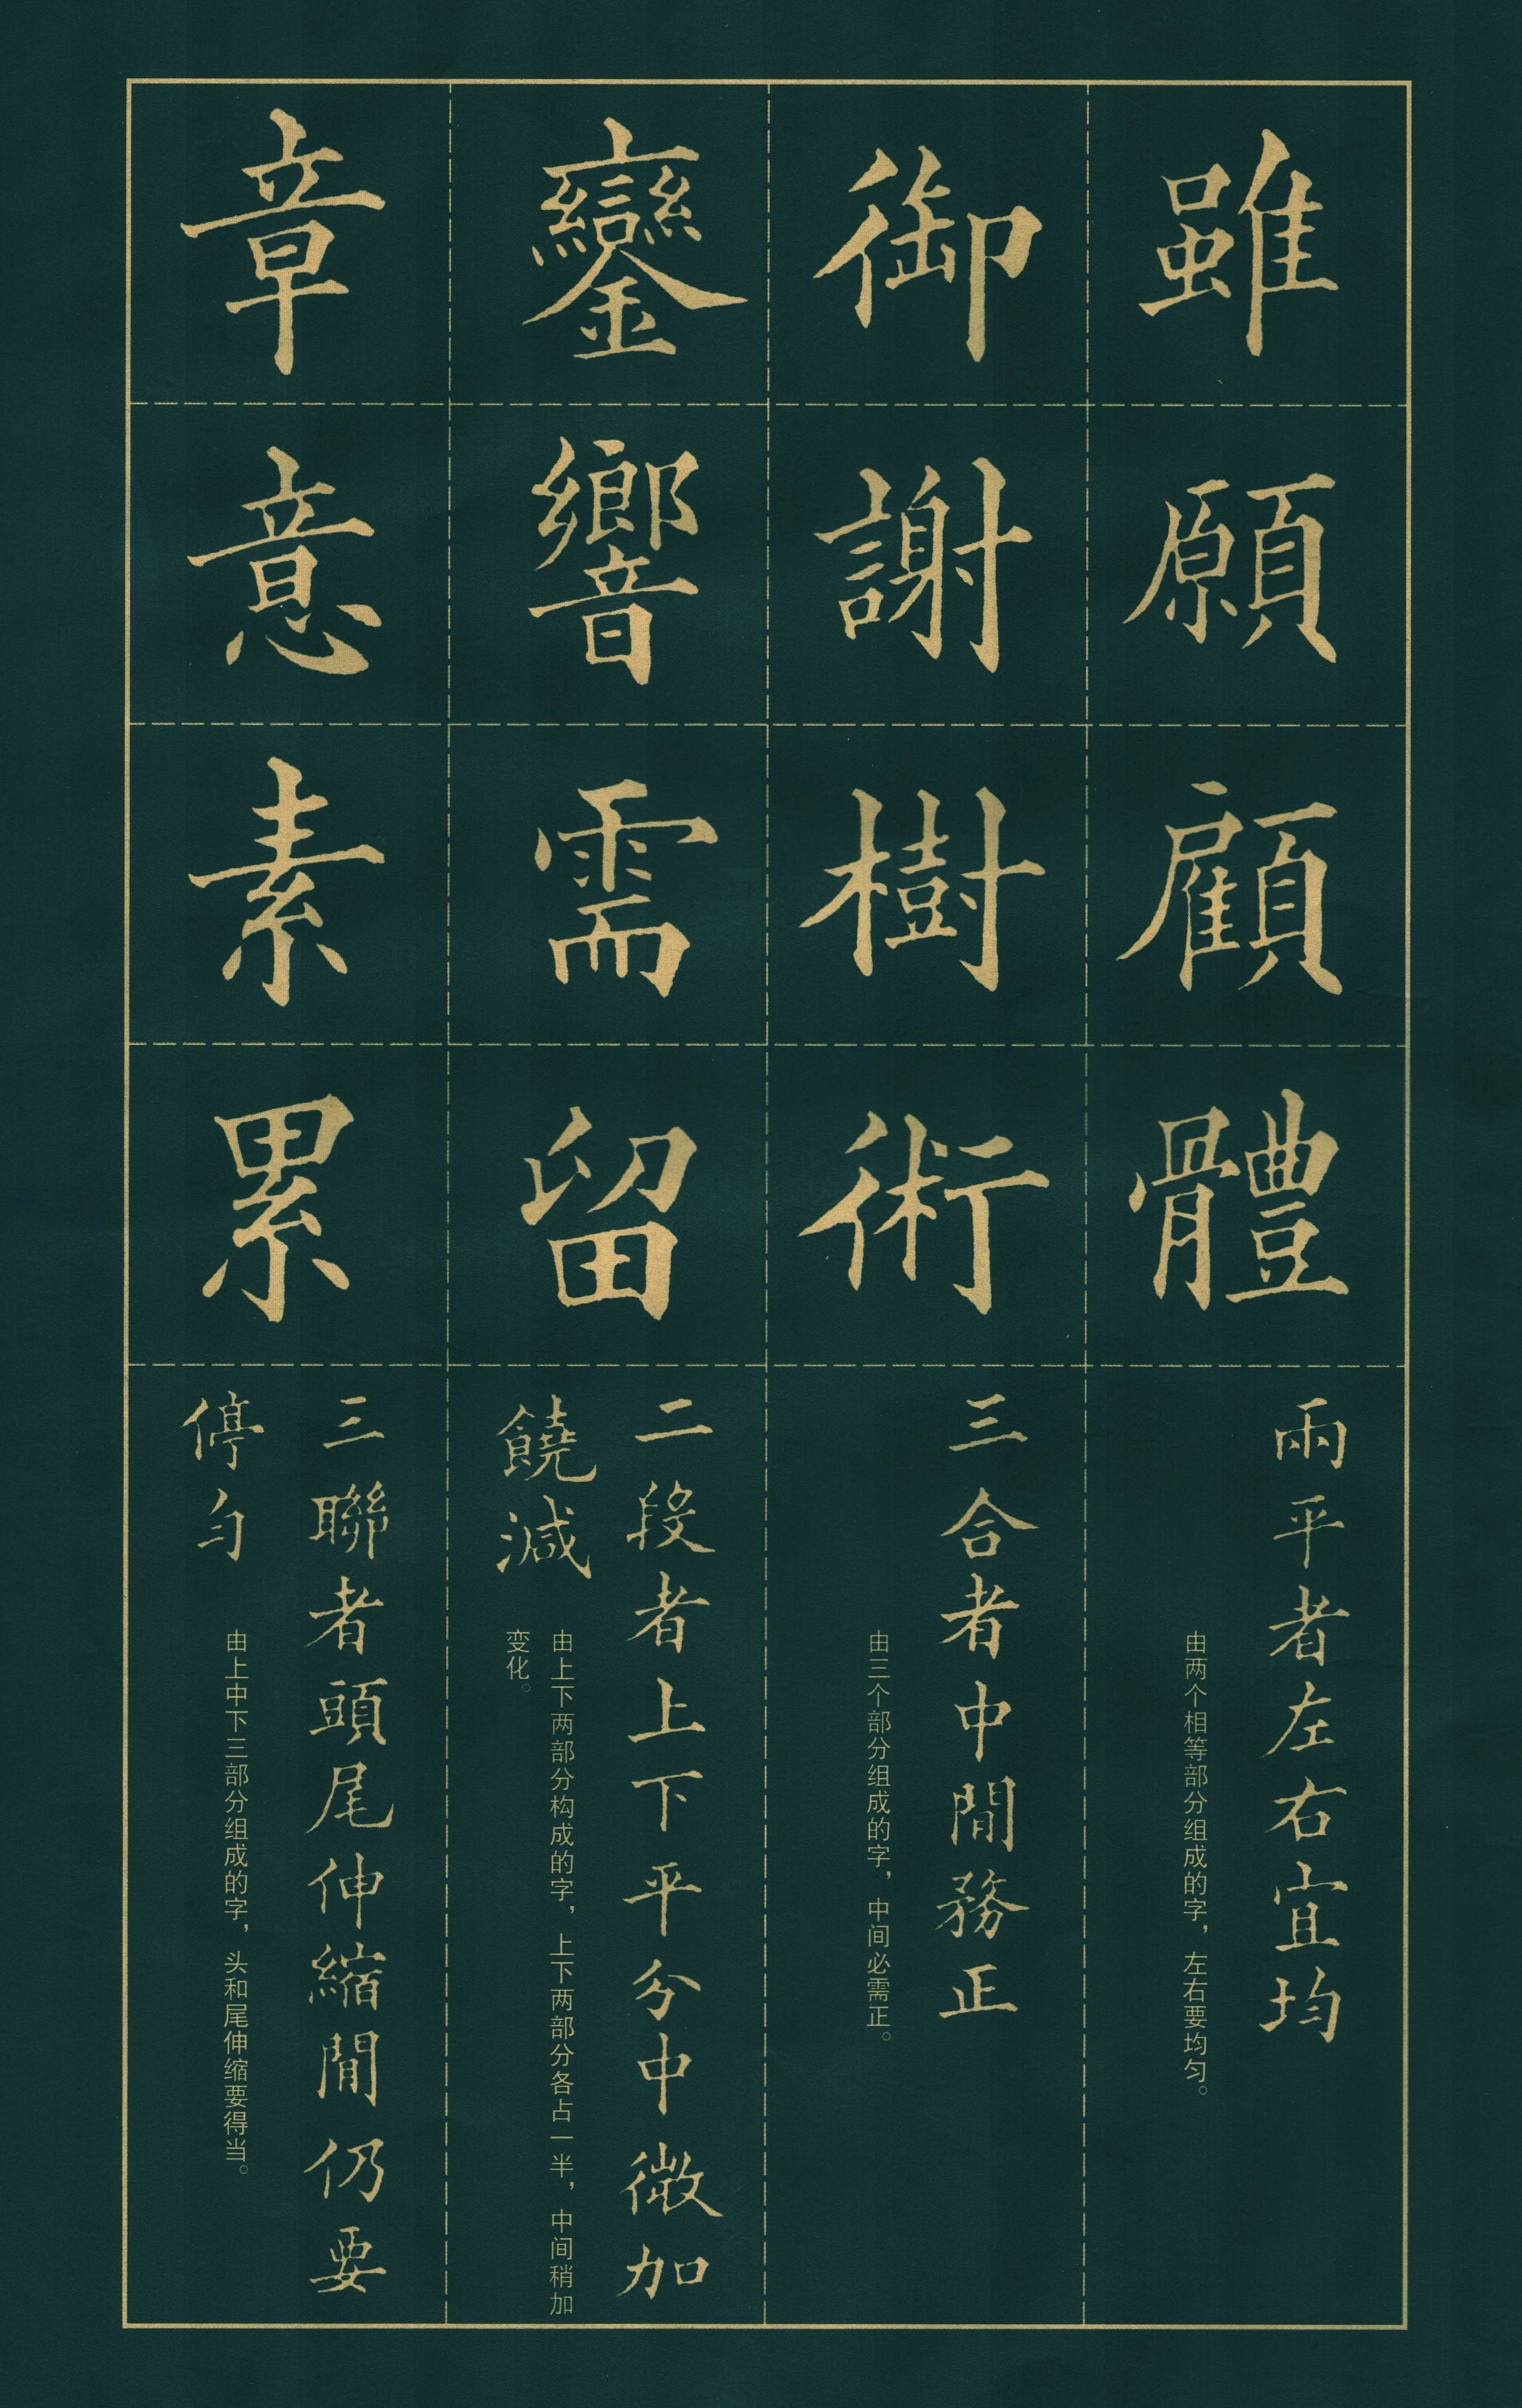 雖
願
顧
體
兩平者左右宜均
由两个相等部分组成的字，左右要均匀。
御
謝
樹
術
三合者中間務正
由三个部分组成的字，中间必需正。
鑾
響
需
留
二段者上下平分中微加
饒減
由上下两部分构成的字，上下两部分各占一半，中间稍加
变化。
章
意
素
累
三聯者頭尾伸縮間仍要
停勻
由上中下三部分组成的字，头和尾伸缩要得当。